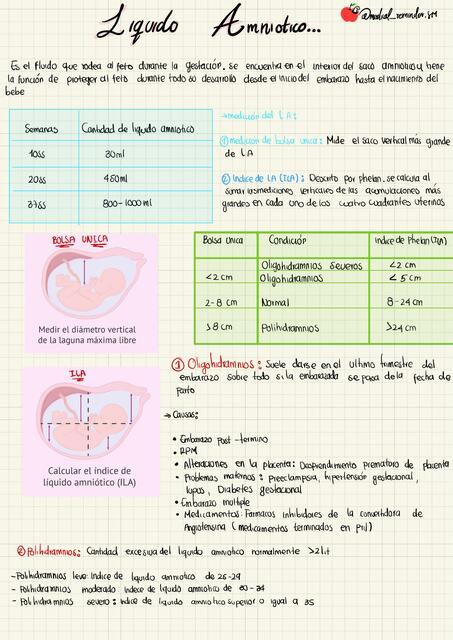 Liquido Amniotico...
@medical_reminder.SM
Es el fluido que rodea al feto durante la gestación. se encuentra en el interior del saco amniotico y tiene
la función de proteger al feto durante todo su desarrollo desde el inicio del embarazo hasta el nacimiento del
bebe
Semanas Cantidad de liquido amniotico
10SS 30ml
20SS 450ml
37SS 800-1000ml
→medición del LA:
① medición de bolsa unica: Mide el saco vertical más grande
de LA
② Indice de LA (ILA): Descrito por phelan, se calcula al
sumar las mediciones verticales de las acumulaciones más
grandes en cada uno de los cuatro cuadrantes uterinos
BOLSA UNICA
Medir el diámetro vertical
de la laguna máxima libre
Bolsa Unica Condición Indice de Phelan (ILA)
Oligohidramnios Severos <2 cm
<2 cm Oligohidramnios < 5 cm
2-8 cm Normal 8-24 cm
>8 cm Polihidramnios >24 cm
ILA
Calcular el índice de
líquido amniótico (ILA)
① Oligohidramnios: Suele darse en el ultimo trimestre del
embarazo sobre todo si la embarazada se pasa de la fecha de
parto
→ Causas:
• Embarazo Post-termino
• RPM
• Alteraciones en la placenta: Desprendimiento prematoro de placenta
• Problemas maternos: preeclampsia, hipertensión gestacional,
lupos, Diabetes gestacional
• Embarazo multiple
• Medicamentos: Farmacos inhibidores de la convertidora de
Angiotensina (medicamentos terminados en pril)
② Polihidramnios: Cantidad excesiva del liquido amniotico normalmente >2lit
-Polihidramnios leve: Indice de liquido amniotico de 25-29
- Polihidramnios moderado: Indece de liquido amniotico de 30-34
- Polihidramnios severo: Indice de liquido amniotico superior o igual a 35